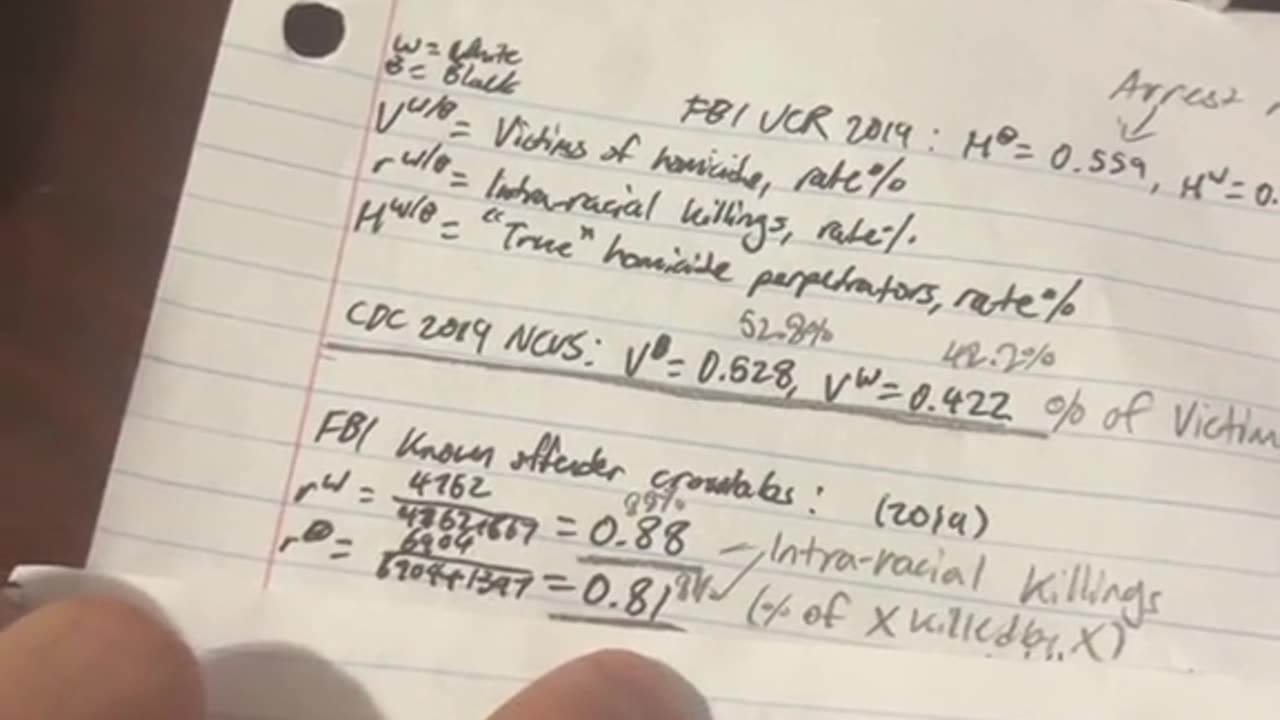 W = White
B = Black
V^W/B = Victims of homicide, rate%
r^W/B = Intra-racial killings, rate%
H^W/B = "True" homicide perpetrators, rate%
FBI UCR 2019: H^B = 0.559, H^W = 0.
Arrest
52.8% 42.2%
CDC 2019 NCVS: V^B = 0.528, V^W = 0.422 % of Victim
FBI Known offender crosstabs: (2019)
r^W = 4762 / = 0.88
r^B = 6904 / 6904+1397 = 0.81
Intra-racial killings
(% of X killed by X)